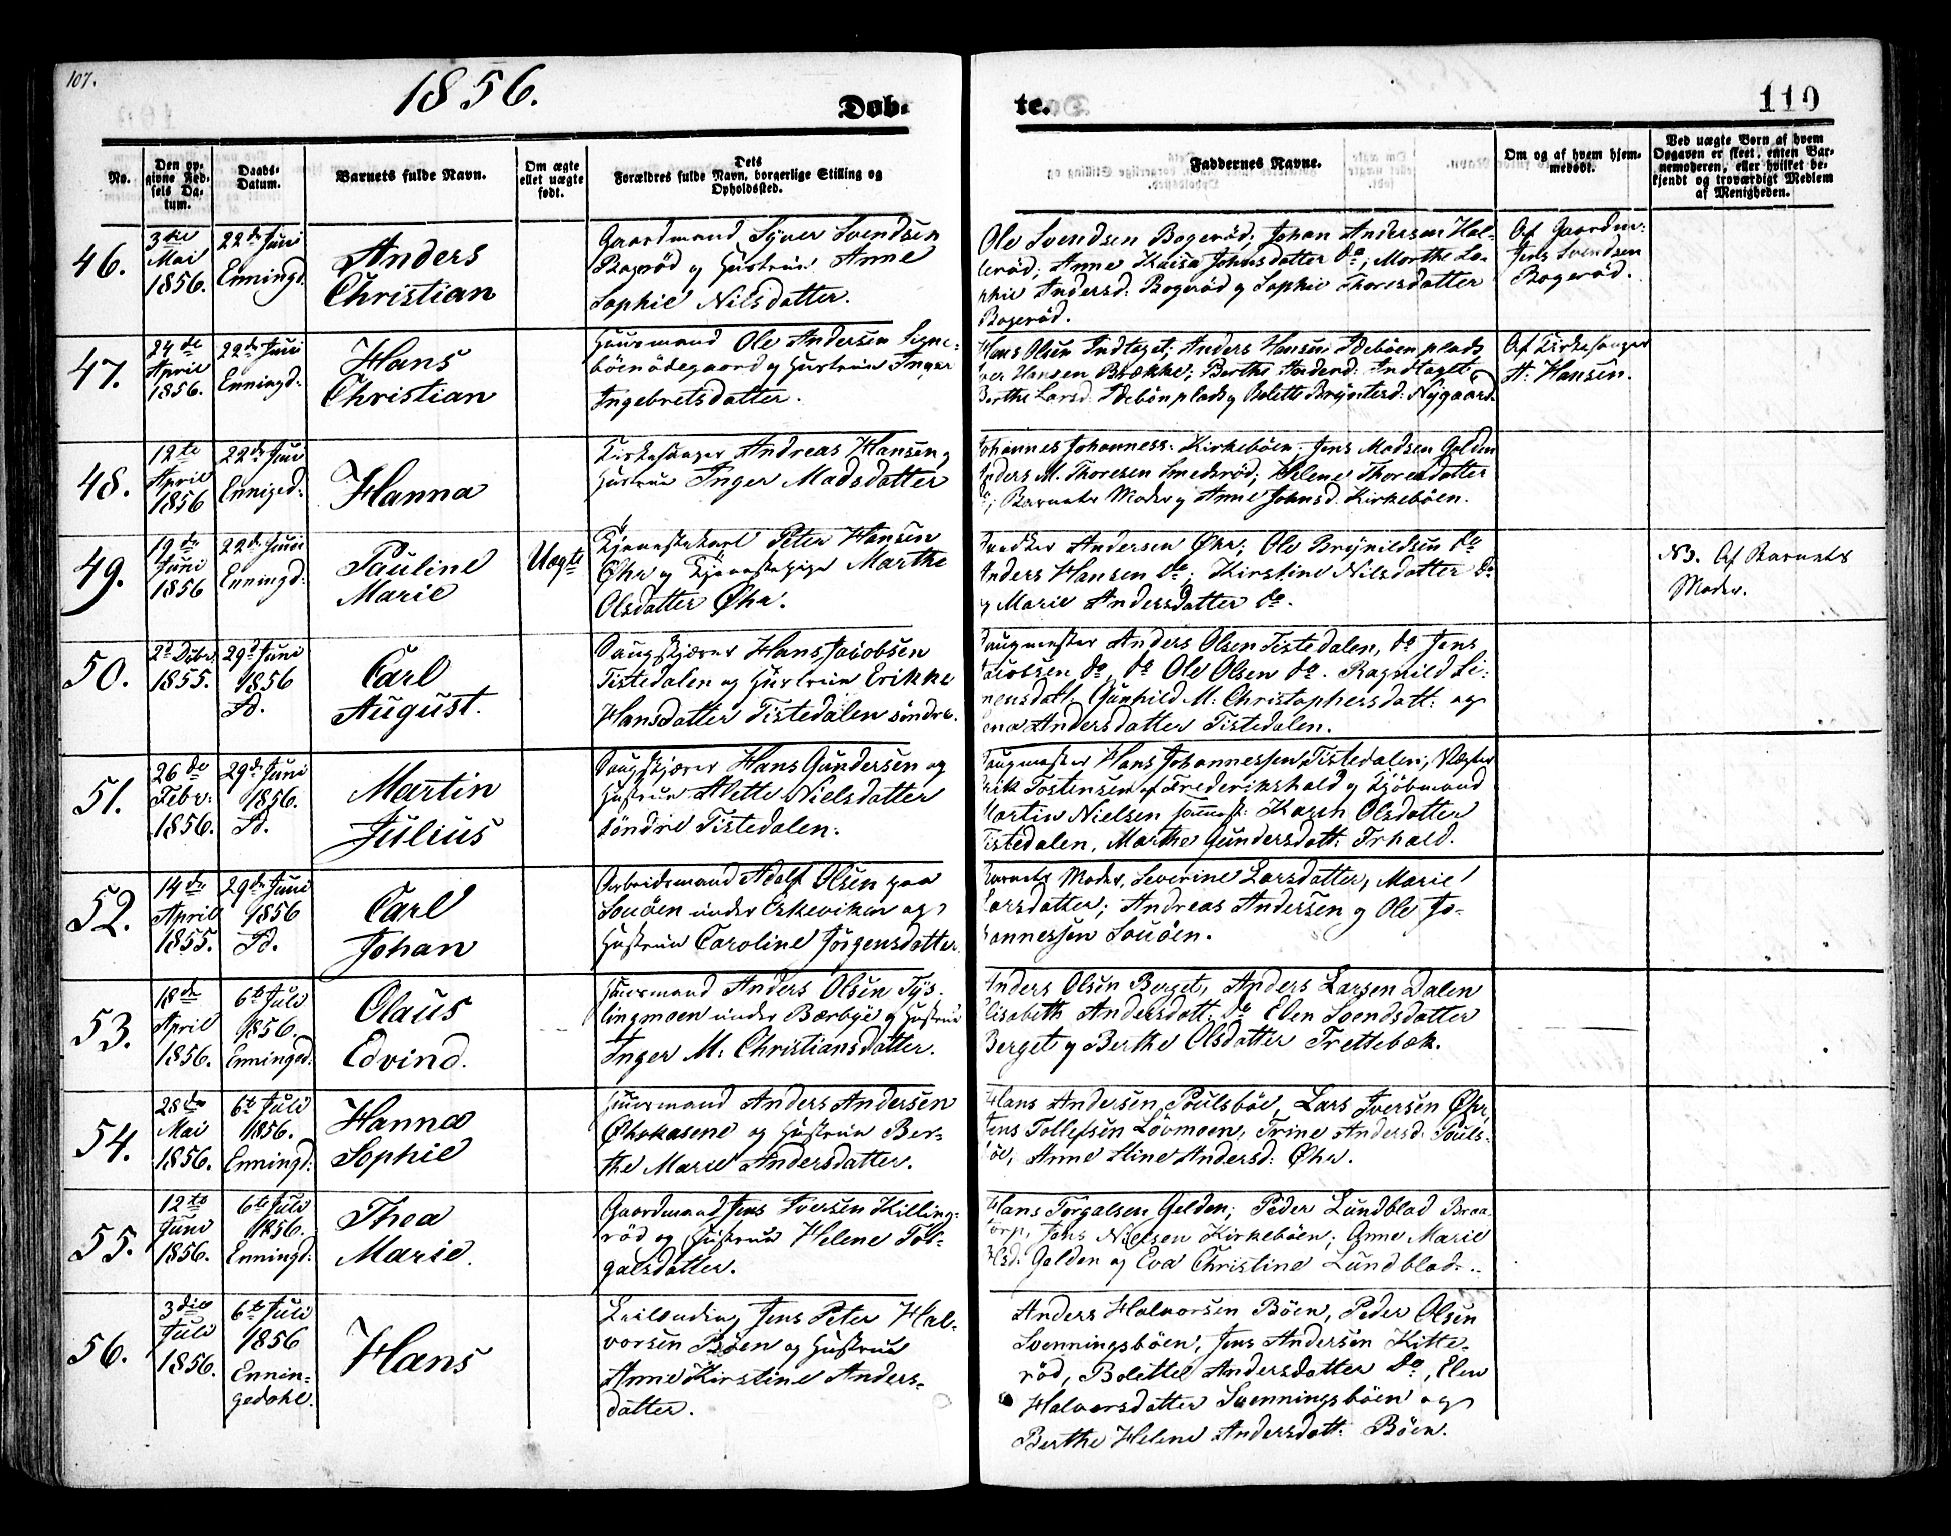 107.
1856.
Døb-
te.
110
No.
Den op-
givne Fød-
sels Da-
tum.
Daabs-
Datum.
Barnets fulde Navn.
Om ægte
eller uægte
født.
Dets
Forældres fulde Navn, borgerlige Stilling og
Opholdssted.
Faddernes Navne.
Om og af hvem hjem-
medøbt.
Ved uægte Børn af hvem
Opgaven er skeet, enten Bar-
nemoderen, eller hvilket be-
kjendt og troværdigt Medlem
af Menigheden.
46.
3die
Mai
1856.
22de Juni
Enningd.
Anders
Christian
Gaardmand Syver Svendsen
Bogerød og Hustrue Anne
Sophie Nilsdatter.
Ole Svendsen Bogerød; Johan Andersen Hol-
lerød; Anne Kaisa Johnsdatter do; Marthe So-
phie Andersd: Bogerød og Sophie Thoresdatter
Bogerød.
Af Gaardm:
Jens Svendsen
Bogerød.
47.
24de
April
1856.
22de Juni
Enningd:
Hans
Christian
Huusmand Ole Andersen Signe-
bøenødegaard og Hustrue Inger
Ingebretsdatter.
Hans Olsen Indtaget; Anders Hansen Idebøenplads
Iver Hansen Brække; Berthe Andersd: Indtaget
Berthe Larsd. Idebønplads og Bolette Bryntesd: Nygaard.
Af Kirkesanger
A: Hansen.
48.
12te
April
1856
22de Juni
Enninged:
Hanna
Kirkesanger Andreas Hansen og
Hustrue Inger Madsdatter
Johannes Johanness: Kirkebøen; Jens Madsen Golden
Anders M. Thoresen Smedsrød; Helene Thoresdatter
do; Barnets Moder og Anne Johnsd. Kirkebøen.
49.
19de
Juni
1856
22de Juni
Enningd:
Pauline
Marie
Uægte
Tjenestekarl Peter Hansen
Øhr og Tjenestepige Marthe
Olsdatter Øhr.
Andersen Øhr; Ole Brynildsen do
Anders Hansen do; Kirstine Nilsdatter do
og Marie Andersdatter do.
Af Barnets
Moder.
50.
2d Dcbr.
1855.
29d Juni
1856
Id.
Carl
August.
Saugskjærer Hans Jacobsen
Tistedalen og Hustrue Erikke
Hansdatter Tistedalen søndre.
Saugmester Anders Olsen Tistedalen, do Jens
Jacobsen do, do Ole Olsen do. Ragnild Si-
mensdatt. Gunhild M: Christophersdatt: og
Andersdatter Tistedalen.
51.
26de
Febr:
1856.
29de Juni
1856.
Id.
Martin
Julius
Saugskjærer Hans Gundersen og
Hustrue Alette Nielsdatter
søndre Tistedalen.
Saugmester Hans Johannessen Tistedalen, Vægter
Erik Tostensen af Frederikshald og Kjøbmand
Martin Nielsen Karen Olsdatter
Tistedalen, Marthe Gundersdatt: Frhald.
52.
14de
April
1855.
29de Juni
1856
Id.
Carl
Johan
Arbeidsmand Adolf Olsen paa
Souøen under Eskeviken og
Hustrue Caroline Jørgensdatter.
Barnets Moder, Severine Larsdatter, Marie
Larsdatter; Andreas Andersen og Ole Jo-
hannessen Souøen.
53.
18de
April
1856.
6te Juli
1856.
Enninged.
Olaus
Edvind.
Huusmand Anders Olsen Tys-
lingmoen under Bærbye og Hustrue
Inger M: Christiansdatter.
Anders Olsen Berget, Anders Larsen Dalen
Elisabeth Andersdatt: do Elen Svendsdatter
Berget og Berthe Olsdatter Trettebæk.
54.
28de
Mai
1856.
6te Juli
1856.
Enningd:
Hanna
Sophie
Huusmand Anders Andersen
Øhrkasene og Hustrue Ber-
the Marie Andersdatter.
Hans Andersen Poulsbøe, Lars Iversen Øhr,
Jens Tollefsen Løvmoen, Trine Andersd. Pouls-
bøe, Anne Stine Andersd: Øhr.
55.
12te
Juni
1856.
6te Juli
1856.
Enningd:
Thea
Marie.
Gaardmand Jens Iversen Killing-
rød og Hustrue Helene Tor-
galsdatter.
Hans Torgalsen Golden; Peder Lundblad Braa-
torp, Jens Nielsen Kirkebøen; Anne Marie
Olsd: Golden og Eva Christine Lundblad.
56.
3die
Juli
1856.
6te Juli
1856
Ennin-
gedahl.
Hans
Jens Peter Hal-
vorsen Bøen og Hustrue
Anne Kirstine Anders-
datter.
Anders Halvorsen Bøen, Peder Olsen
Svenningsbøen, Jens Andersen Kitte-
rød, Bolette Andersdatter do, Elen
Halvorsdatter Svenningsbøen og
Berthe Helene Andersdatt: Bøen.